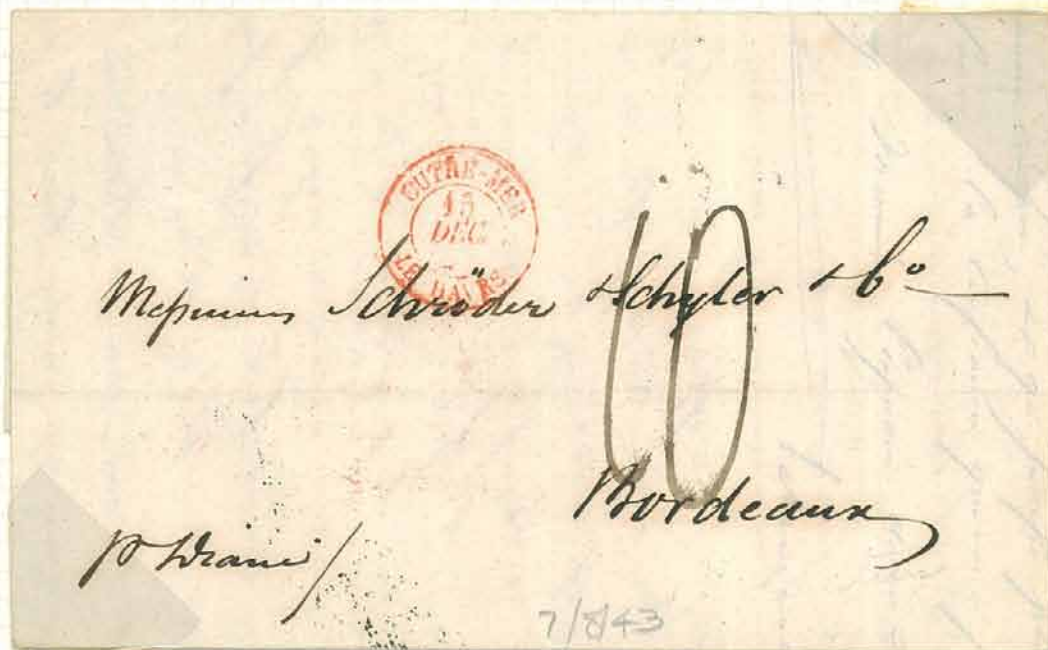 OUTRE-MER
15
DEC.
LE HAVRE
Messieurs Schröder & Schyler & Cº
10
Bordeaux
7/8/43